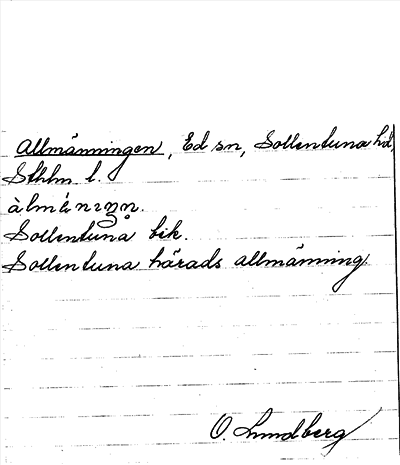 Allmänningen, Ed sn, Sollentuna hd,
Sthlm l.
Sollentuna bik.
Sollentuna härads allmänning.
O. Lundberg